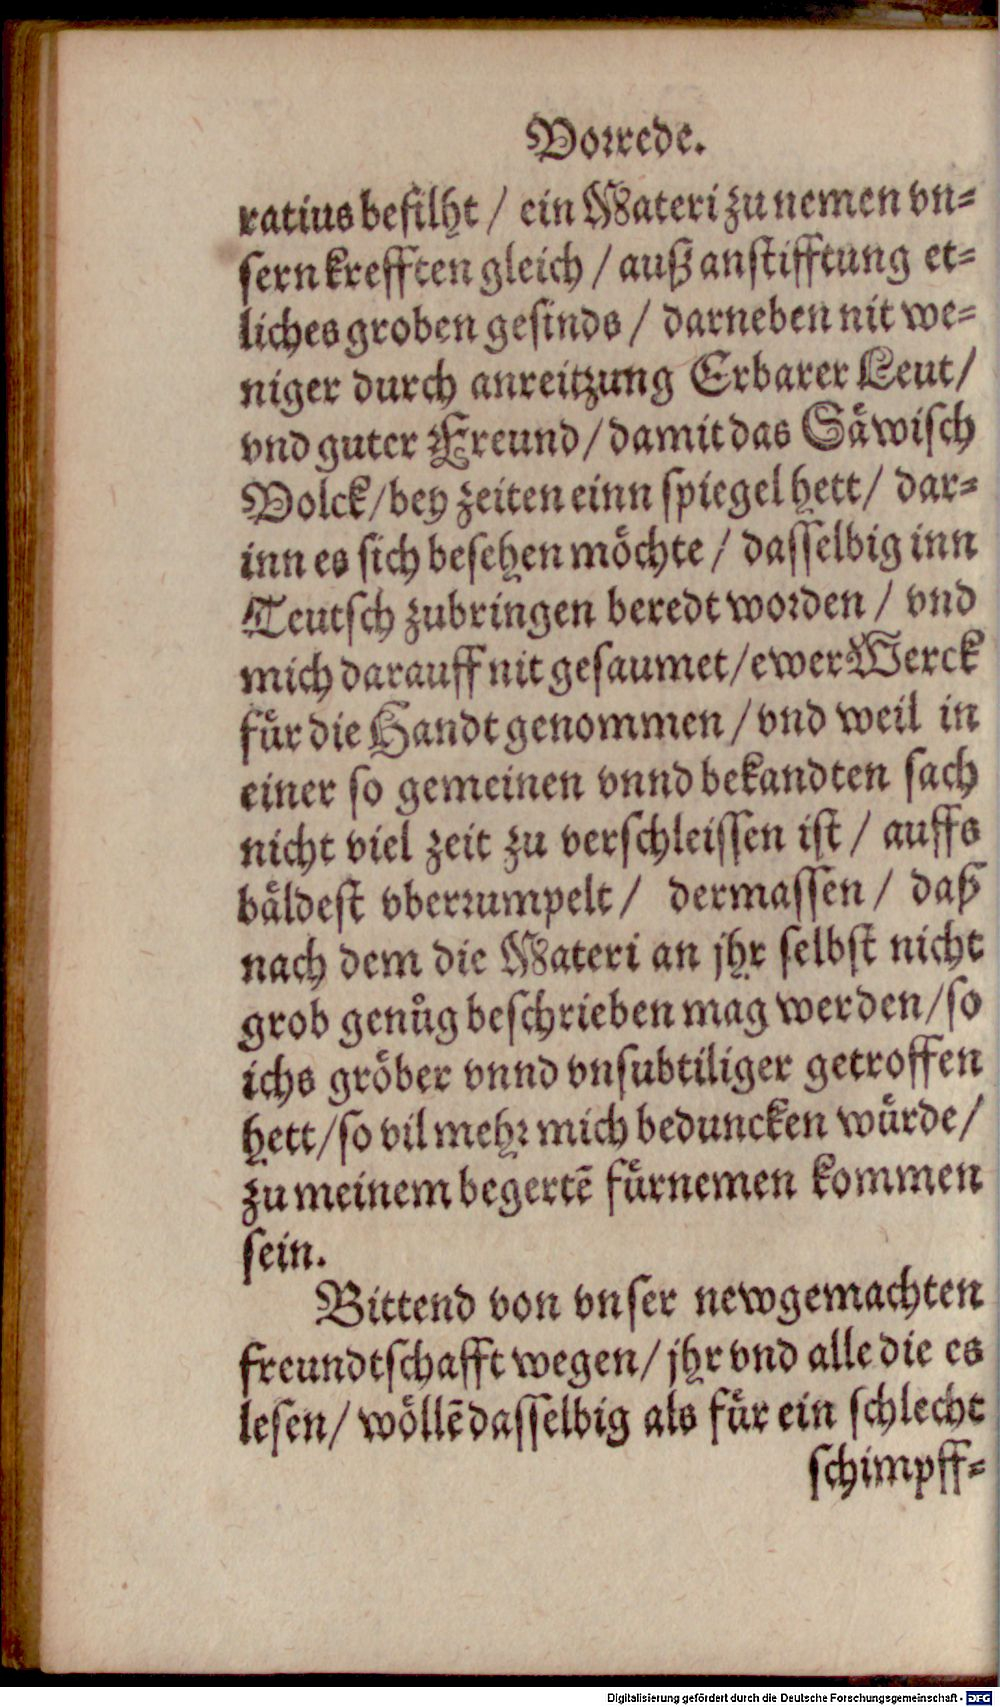 Vorrede.
ratius befilht / ein Materi zu nemen vn-
sern krefften gleich / auß anstifftung et-
liches groben gesinds / darneben nit we-
niger durch anreitzung Erbarer Leut /
vnd guter Freund / damit das Säwisch
Volck / bey zeiten einn spiegel hett / dar-
inn es sich besehen möchte / dasselbig inn
Teutsch zubringen beredt worden / vnd
mich darauff nit gesaumet / ewer Werck
für die Handt genommen / vnd weil in
einer so gemeinen vnnd bekandten sach
nicht viel zeit zu verschleissen ist / auffs
bäldest vberrumpelt / dermassen / daß
nach dem die Materi an jhr selbst nicht
grob genůg beschrieben mag werden / so
ichs gröber vnnd vnsubtiliger getroffen
hett / so vil mehr mich beduncken würde /
zu meinem begertẽ fürnemen kommen
sein.
Bittend von vnser newgemachten
freundtschafft wegen / jhr vnd alle die es
lesen / wöllẽ dasselbig als für ein schlecht
schimpff-
Digitalisierung gefördert durch die Deutsche Forschungsgemeinschaft - DFG